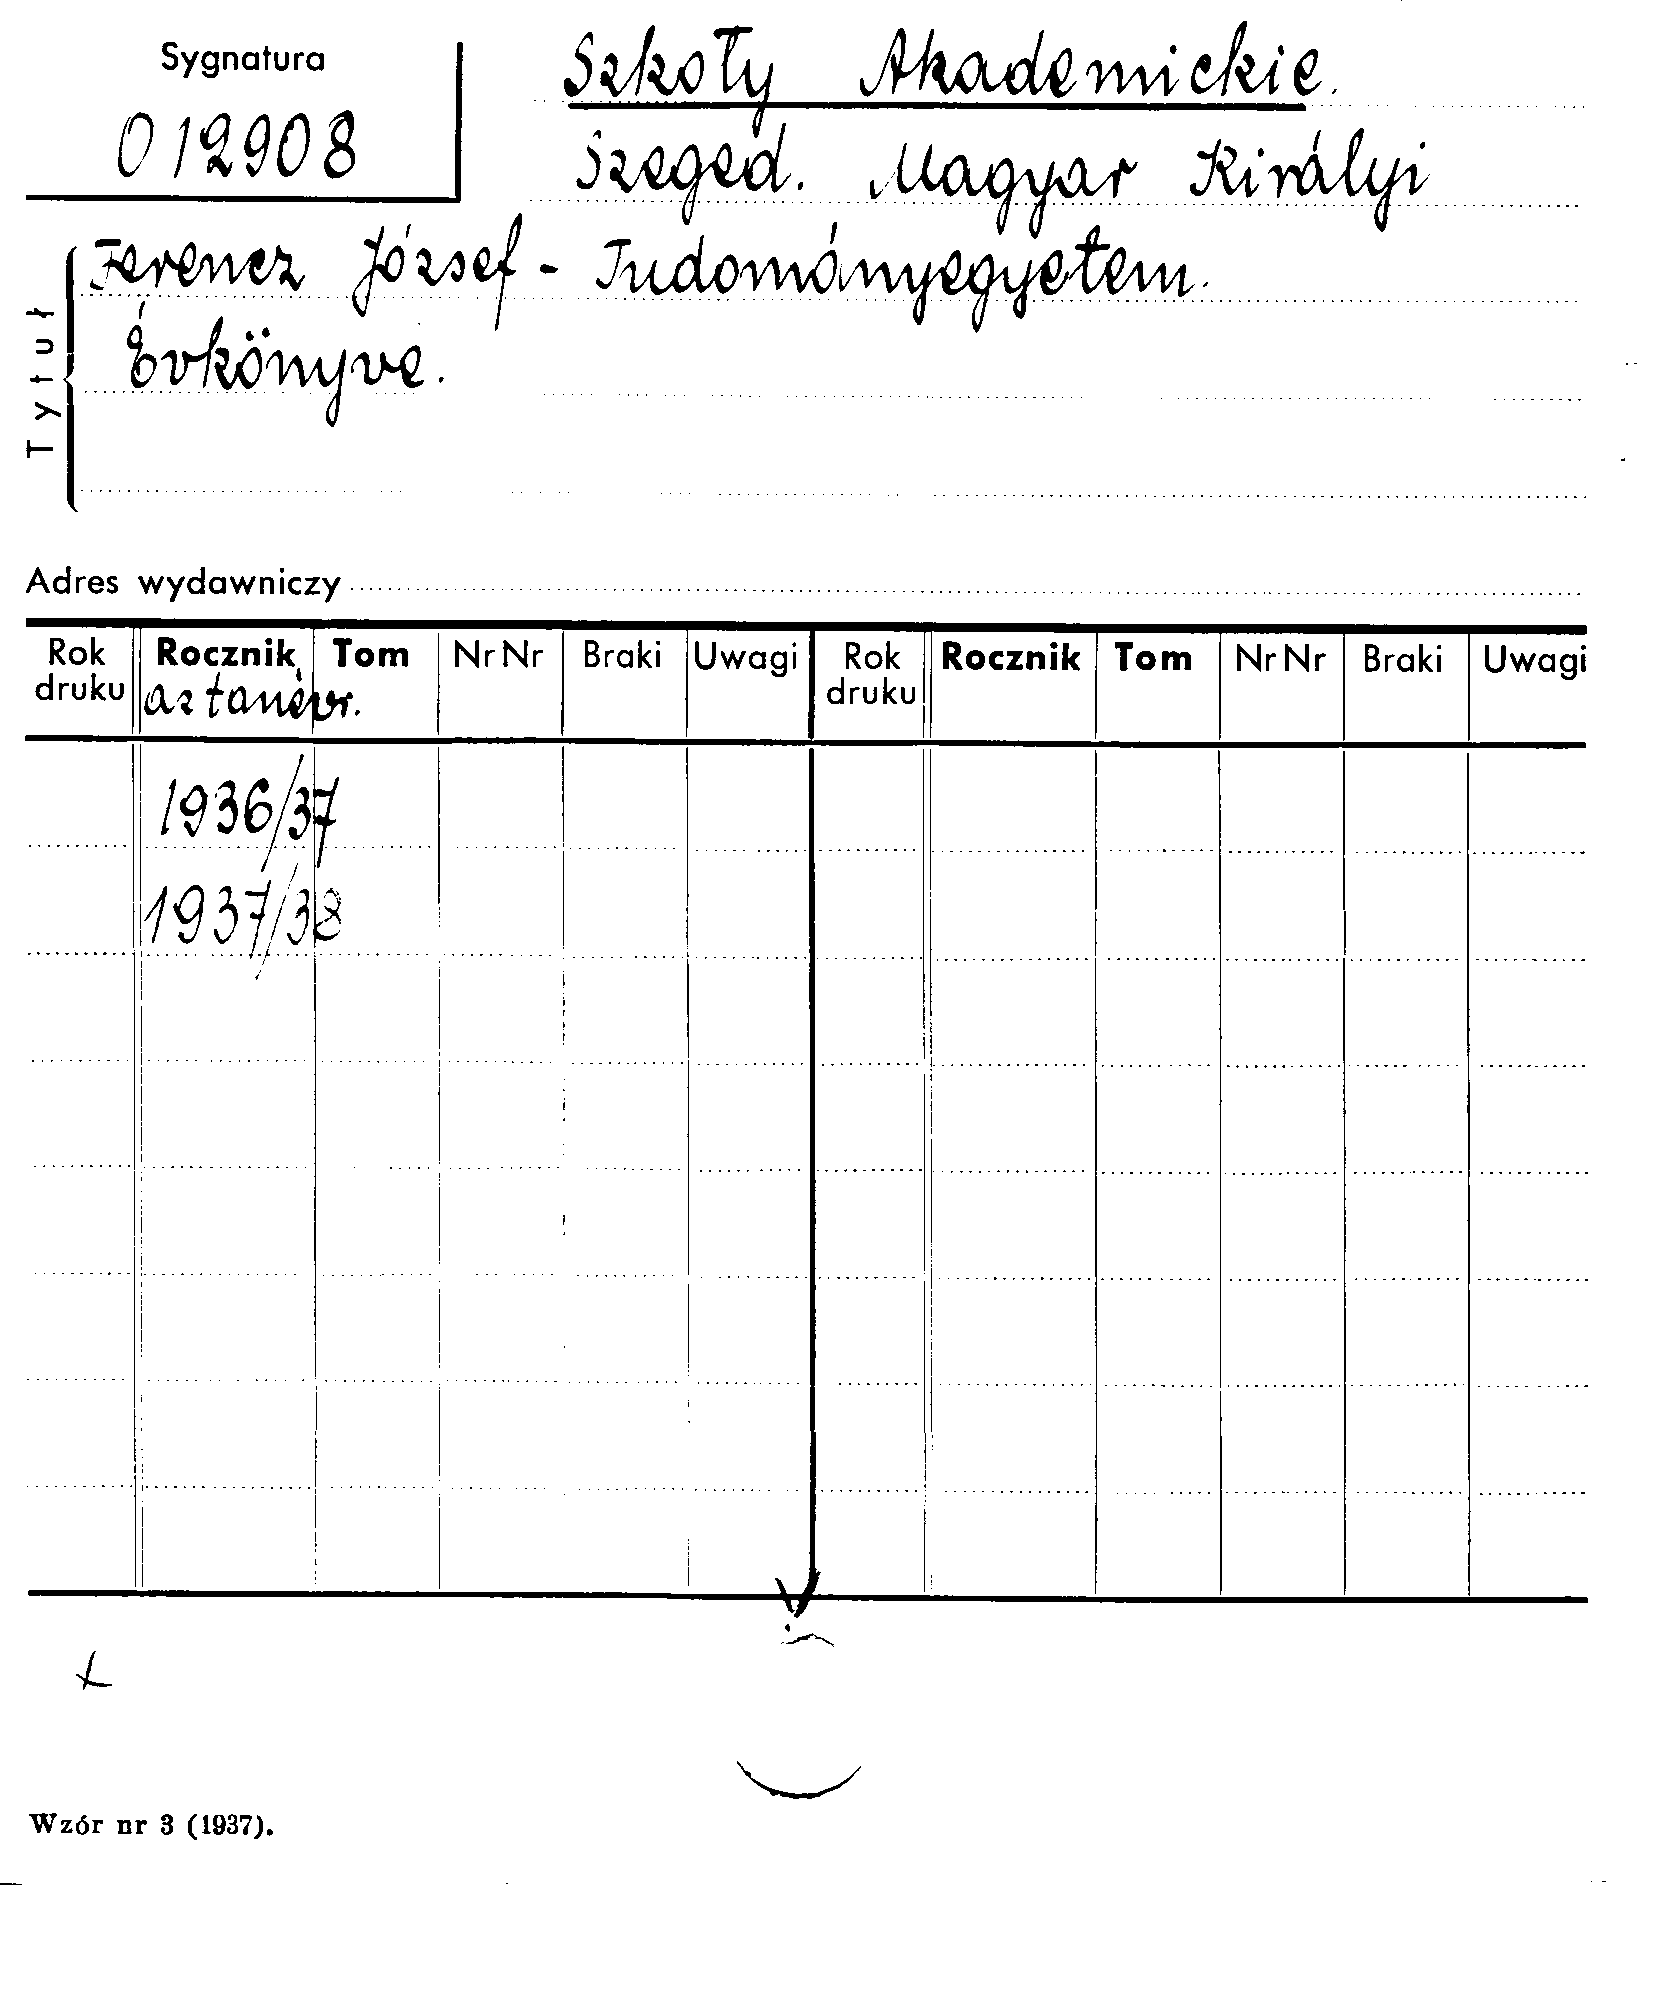 Sygnatura
012908
Szkoły Akademickie.
Szeged. Magyar Királyi
Ferencz József - Tudományegyetem.
Évkönyve.
Tytuł
Adres wydawniczy
Rok druku Rocznik Tom Nr Nr Braki Uwagi Rok druku Rocznik Tom Nr Nr Braki Uwagi
az tanévr.
1936/37
1937/38
Wzór nr 3 (1937).